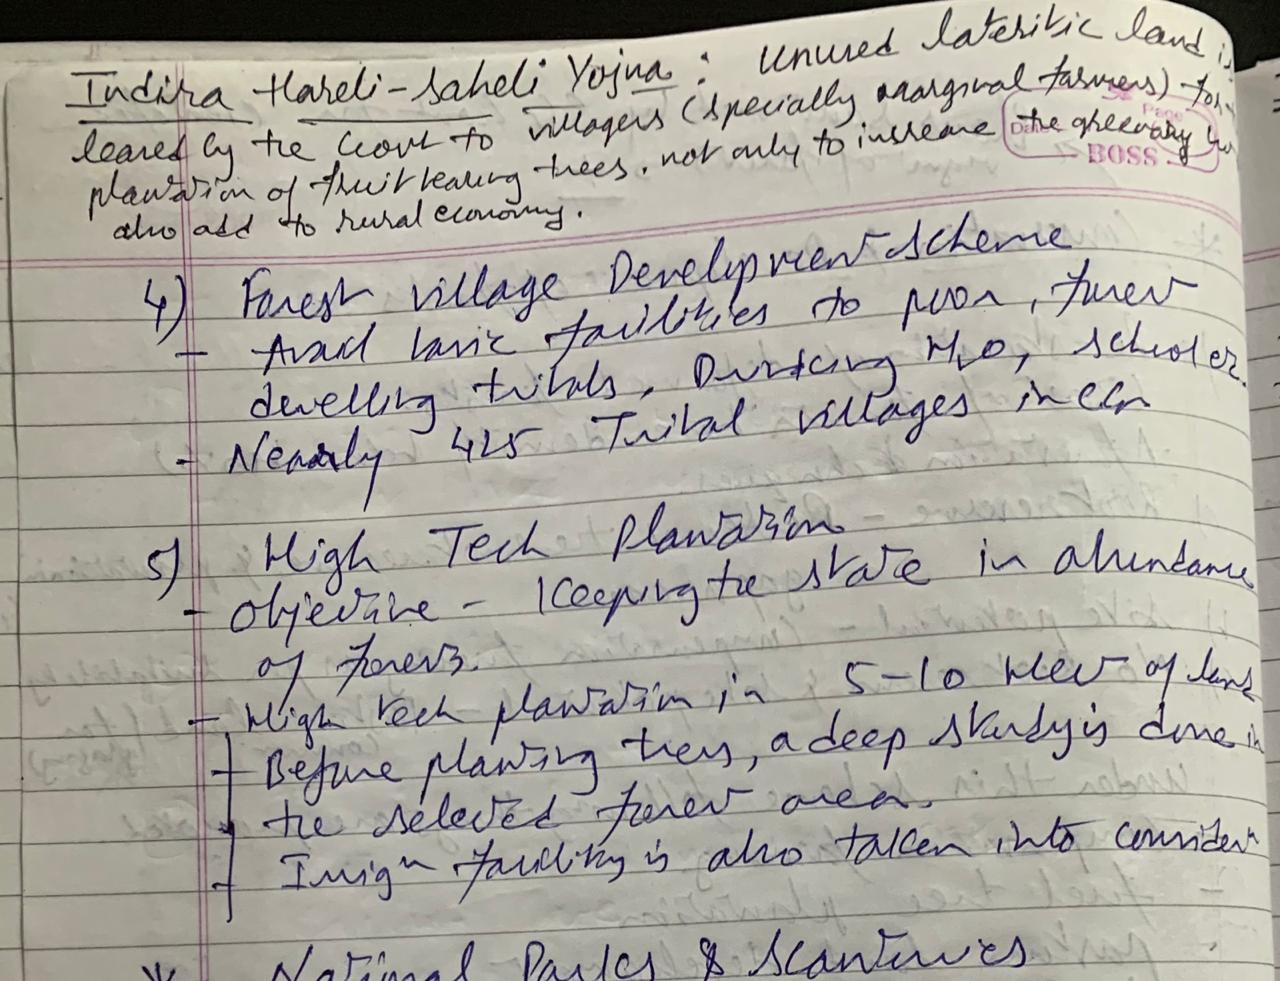 Indira Hareli-Saheli Yojna: Unused lateritic land is
leared by the Govt to villagers (specially marginal farmers) for
plantation of fruit bearing trees. not only to increase the greenary but
also add to rural economy.
Date Page
BOSS
4) Forest village Development scheme
- Avail basic facilities to poor, forest
dwelling tribals, Drinking H2O, school etc.
- Nearly 425 Tribal villages in CG
5) High Tech Plantation
- Objective - Keeping the state in abundance
of forests.
- High tech plantation in 5-10 Hect of land
- Before planting trees, a deep study is done in
the selected forest area.
- Irrign facility is also taken into consider
* National Parks & Scanturies